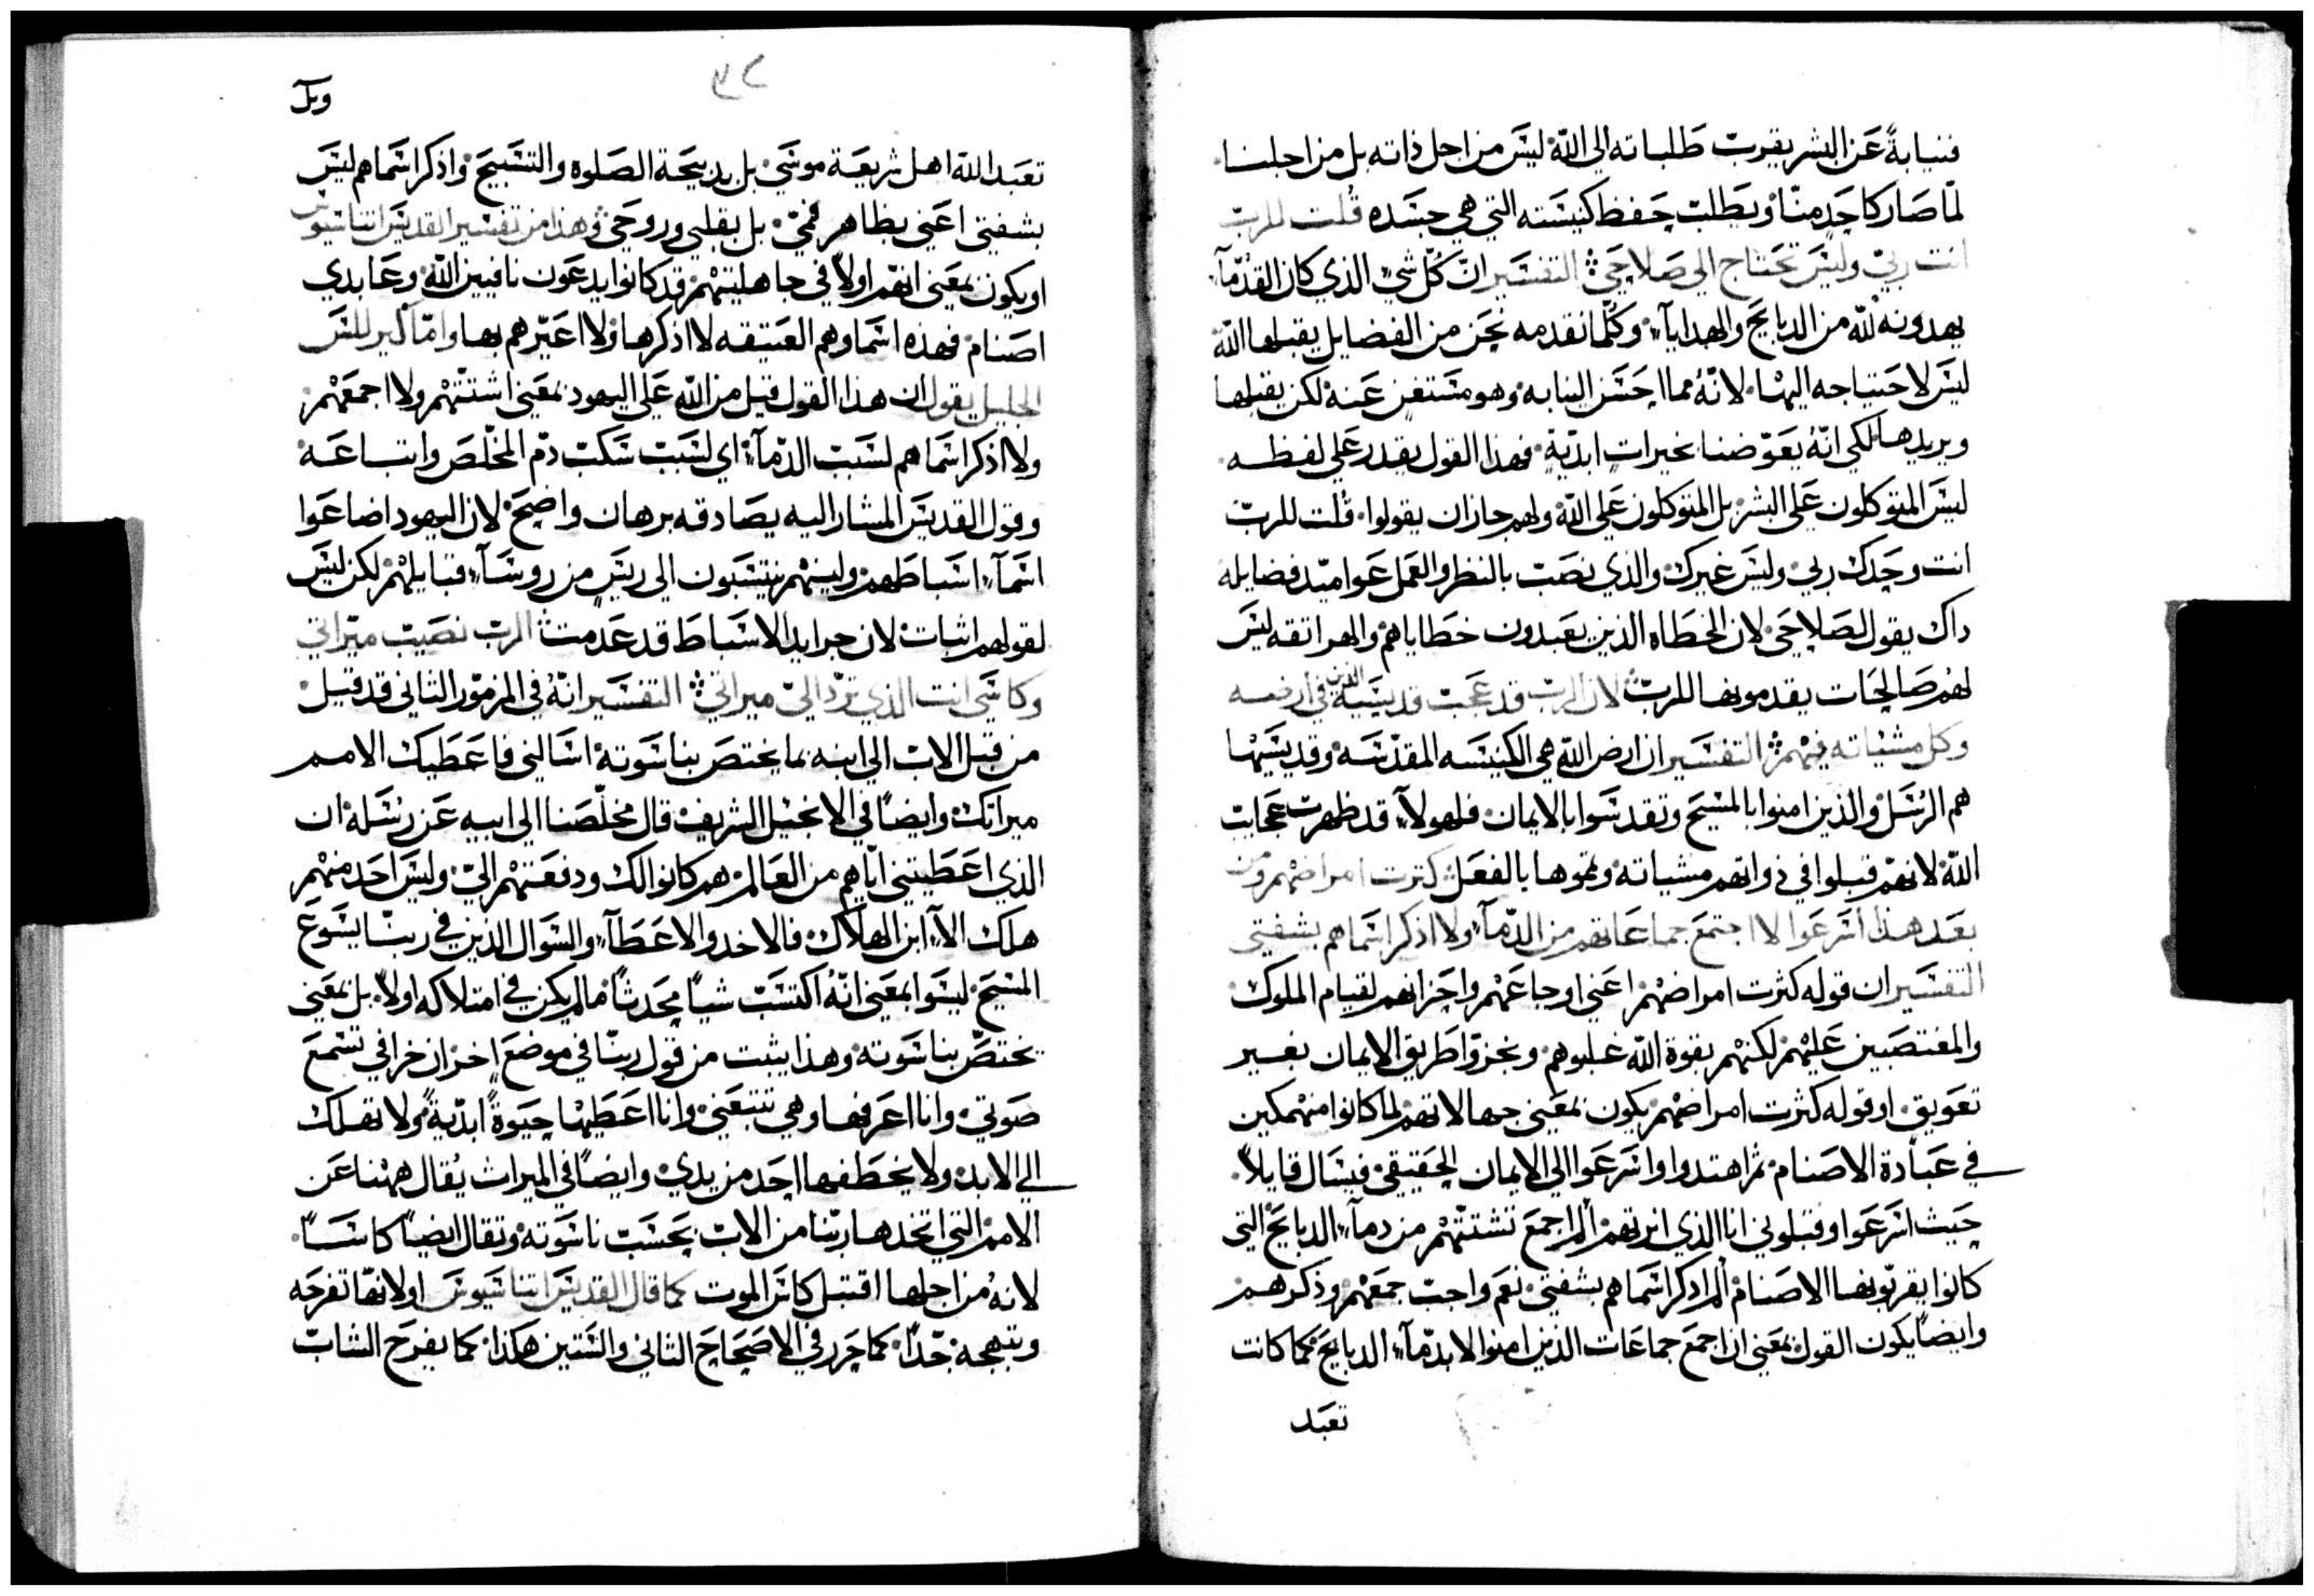 فنيابةً عن البشر يقرب طلباته الي اللّه ليس من اجل ذاته بل من اجلنا
لمّا صار كاحد منّا ويطلب حفظ كنيسته التي هي جسده قلت للربّ
انت ربّي وليس تحتاج الي صلاحي التفسير انّ كلّ شيٍ الذي كان القدمآ
يهدونه للّه من الدبايح والهدايآ، وكلّما نقدمه نحن من الفضايل يقبلها اللّه
ليس لاحتياجه اليها لانّهُ مما احسن الينا به وهو مستغنٍ عنه لكن يقبلها
ويريدها لكي انّهُ يعوّضنا بخيراتٍ ابديّة فهذا القول يقدر علي لفظه
ليس المتوكلون علي البشر بل المتوكلون علي اللّه ولهم جاز ان يقولوا قلت للربّ
انت وحدك ربي وليس غيرك والذي نصب بالنظر والعمل عواميد فضايله
داك يقول لصلاحي لان الخطاه الذين يعبدون خطاياهم والهراتقه ليس
لهم صالحات يقدمونها للربّ لان الربّ قد عجب قديسيه الذين في ارضه
وكل مشياته فيهم التفسير ان ارض اللّه هي الكنيسه المقدّسه وقديسيها
هم الرسل والذين امنوا بالمسيح وتقدسوا بالايمان فلهولآ، قد ظهرت عجايب
اللّه لانهم قبلوا في ذواتهم مشياته وتموها بالفعل كترت امراضهم ومن
بعد هذا اسرعوا لا اجتمع جماعاتهم من الدّمآ، ولا اذكر اسماهم بشفتي
التفسير ان قوله كثرت امراضهم اعني اوجاعهم واحزانهم لقيام الملوك
والمغتصبين عليهم لكنهم بقوة اللّه غلبوهم ونجزوا طريق الايمان بغير
تعويق او قوله كثرت امراضهم يكون بمعني جهالاتهم لما كانوا منهمكين
في عبادة الاصنام ثم اهتدوا واسرعوا الي الايمان الحقيقي فيسال قايلاً
حيث اسرعوا وقبلوني انا الذي انرتهم ألم اجمع تشتتهم من دمآ، الدبايح التي
كانوا يقربونها الاصنام ألم اذكر اسماهم بشفتي نعم واجب جمعهم وذكرهم
وايضاً يكون القول بمعني ان اجمع جماعات الذين امنوا لا بدمآ، الدبايح كما كانت
تعبد
٣٢
وبل
تعبد اللّه اهل شريعة موسي بل بدبيحة الصلوه والتسبيح واذكر اسماهم ليس
بشفتي اعني بظاهر فمي بل بقلبي وروحي وهذا من تفسير القديس اتناسيوس
او يكون بمعني انهم اولاً في جاهليتهم قد كانوا يدعون نافيين اللّه وعابدي
اصنام فهذه اسماوهم العتيقه لا اذكرها ولا اعيّرهم بها وامّا كيرللس
الجليل يقول ان هذا القول قيل من اللّه علي اليهود بمعني اشتتهم ولا اجمعهم
ولا اذكر اسماهم لسبب الدّمآ، اي لسبب سكب دم المخلّص واتباعه
وقول القديس المشار اليه يصادقه برهان واضح لان اليهود اضاعوا
اسمآ، اسباطهم وليسهم ينتسبون الي ريس من روسآ، قبايلهم لكن ليس
لقولهم اثبات لان جرايد الاسباط قد عدمت الرب نصيب ميراتي
وكاسي انت الذي تردّ اليّ ميراتي التفسير انّهُ في المزمور الثاني قد قيل
من قبل الاب الي ابنه بما يختص بناسوته اسالني فاعطيك الامم
ميراتك وايضاً في الانجيل الشريف قال مخلّصنا الي ابيه عن رسله ان
الذي اعطيتني ايّاهم من العالم هم كانوا لك ودفعتهم اليّ وليس احد منهم
هلك الاّ، ابن الهلاك فالاخد والاعطآ، والسوال الذين في ربنا يسوع
المسيح ليسوا بمعني انّهُ اكتسب شياً محدثاً مالم يكن في امتلاكه اولاً بل بمعني
يختصّ بناسوته وهذا يثبت من قول ربنا في موضع اخر ان خرافي تسمع
صوتي وانا اعرفها وهي تتبعني وانا اعطيها حيوةً ابديّةً ولا تهلك
الي الابد ولا يخطفها احد من يدي وايضاً في الميراث يُقال ههنا عن
الامم التي اتخدها ربنا من الاب بحسب ناسوته وتقال ايضاً كاساً
لانهُ من اجلها اقتبل كاس الموت كما قال القديس اتناسيوس او لانها تفرحه
وتبهجه جدّاً كما حرر في الاصحاح التاني والستين هكذا كما يفرح الشاب